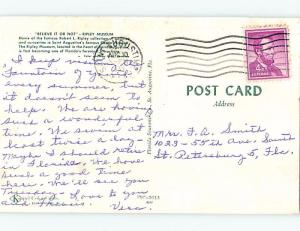 "BELIEVE IT OR NOT" — RIPLEY MUSEUM
Home of the famous Robert L. Ripley collection of
and curiosities in Saint Augustine's famous
The Ripley Museum, located in the heart of
is fast becoming one of Florida's
I keep visiting the
Fountain of Youth
every summer, but
it doesn't seem to
help. We are having
such a wonderful
time. We swim at
least twice a day -
Maybe I should retire
in Florida. We have
such good time
here. We'll see you
Tuesday - Love to you
and Francis. Vera.
POST CARD
Address
Mrs. F. A. Smith
1023-55th Ave. South
St. Petersburg 5, Fla.
4¢